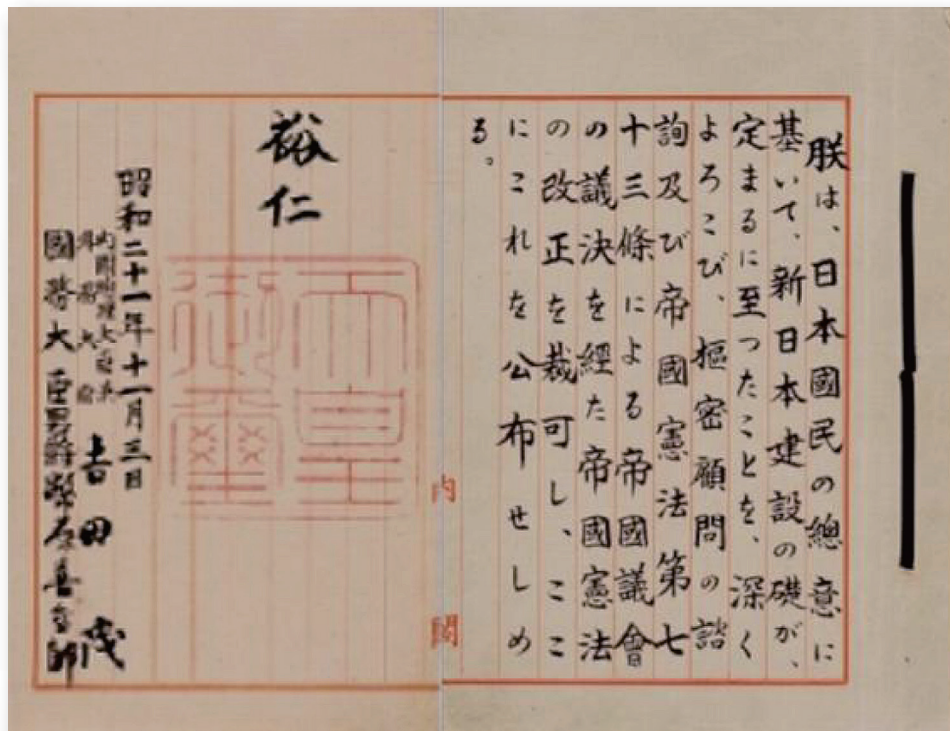 朕は、日本國民の總意に
基いて、新日本建設の礎が、
定まるに至つたことを、深く
よろこび、樞密顧問の諮
詢及び帝國憲法第七
十三條による帝國議會
の議決を經た帝國憲法
の改正を裁可し、ここ
にこれを公布せしめ
る。
裕仁
天皇御璽
昭和二十一年十一月三日
内閣總理大臣兼
外務大臣 吉田茂
國務大臣 男爵 幣原喜重郎
内閣